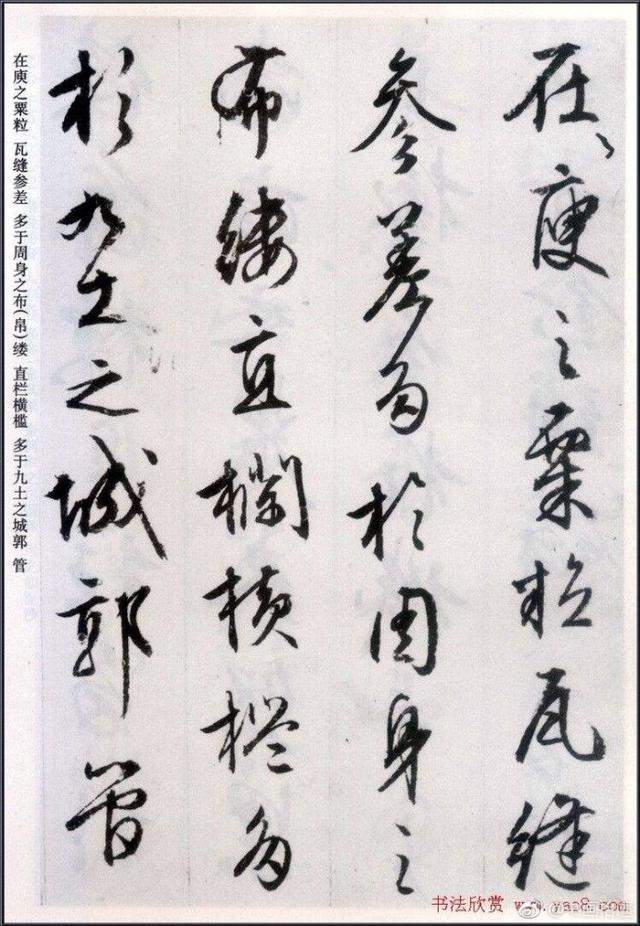 在、庾之粟粒瓦縫
參差多於周身之
布縷直欄橫檻多
於九土之城郭管
在庾之粟粒 瓦缝参差 多于周身之布(帛)缕 直栏横槛 多于九土之城郭 管
书法欣赏 www.yac8.com